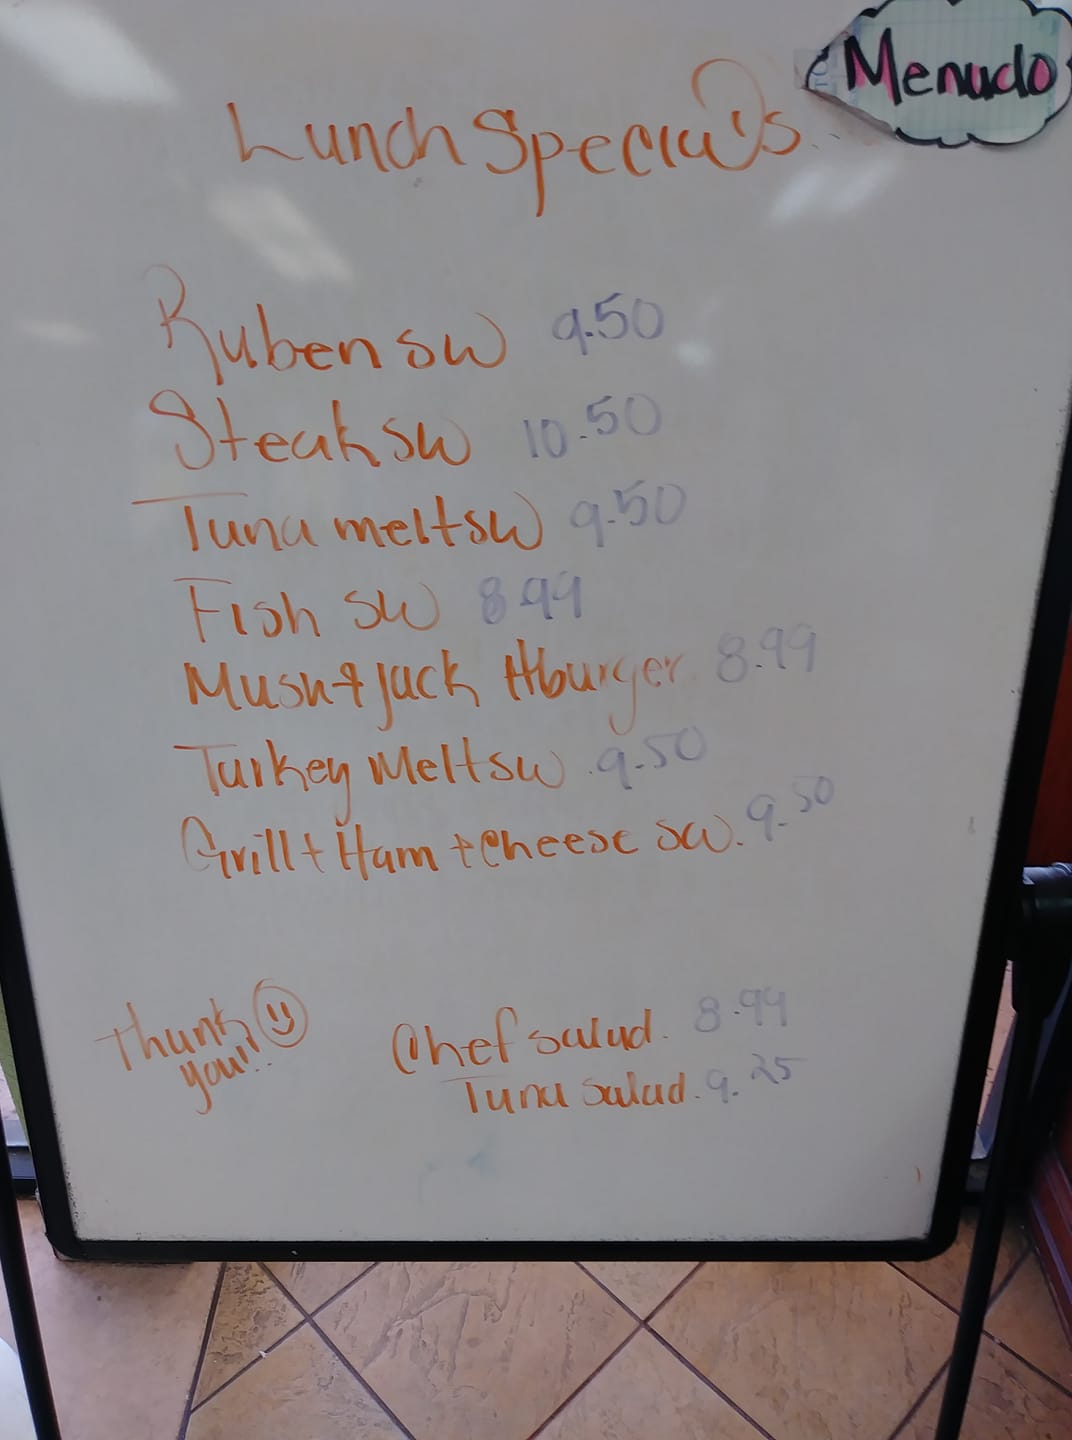 Menudo
Lunch Specials
Ruben sw 9.50
Steak sw 10.50
Tuna melt sw 9.50
Fish sw 8.99
Mush + Jack Hburger 8.99
Turkey Melt sw 9.50
Grill + Ham + Cheese sw. 9.50
Thank
you!!
Chef salad. 8.99
Tuna salad. 9.25